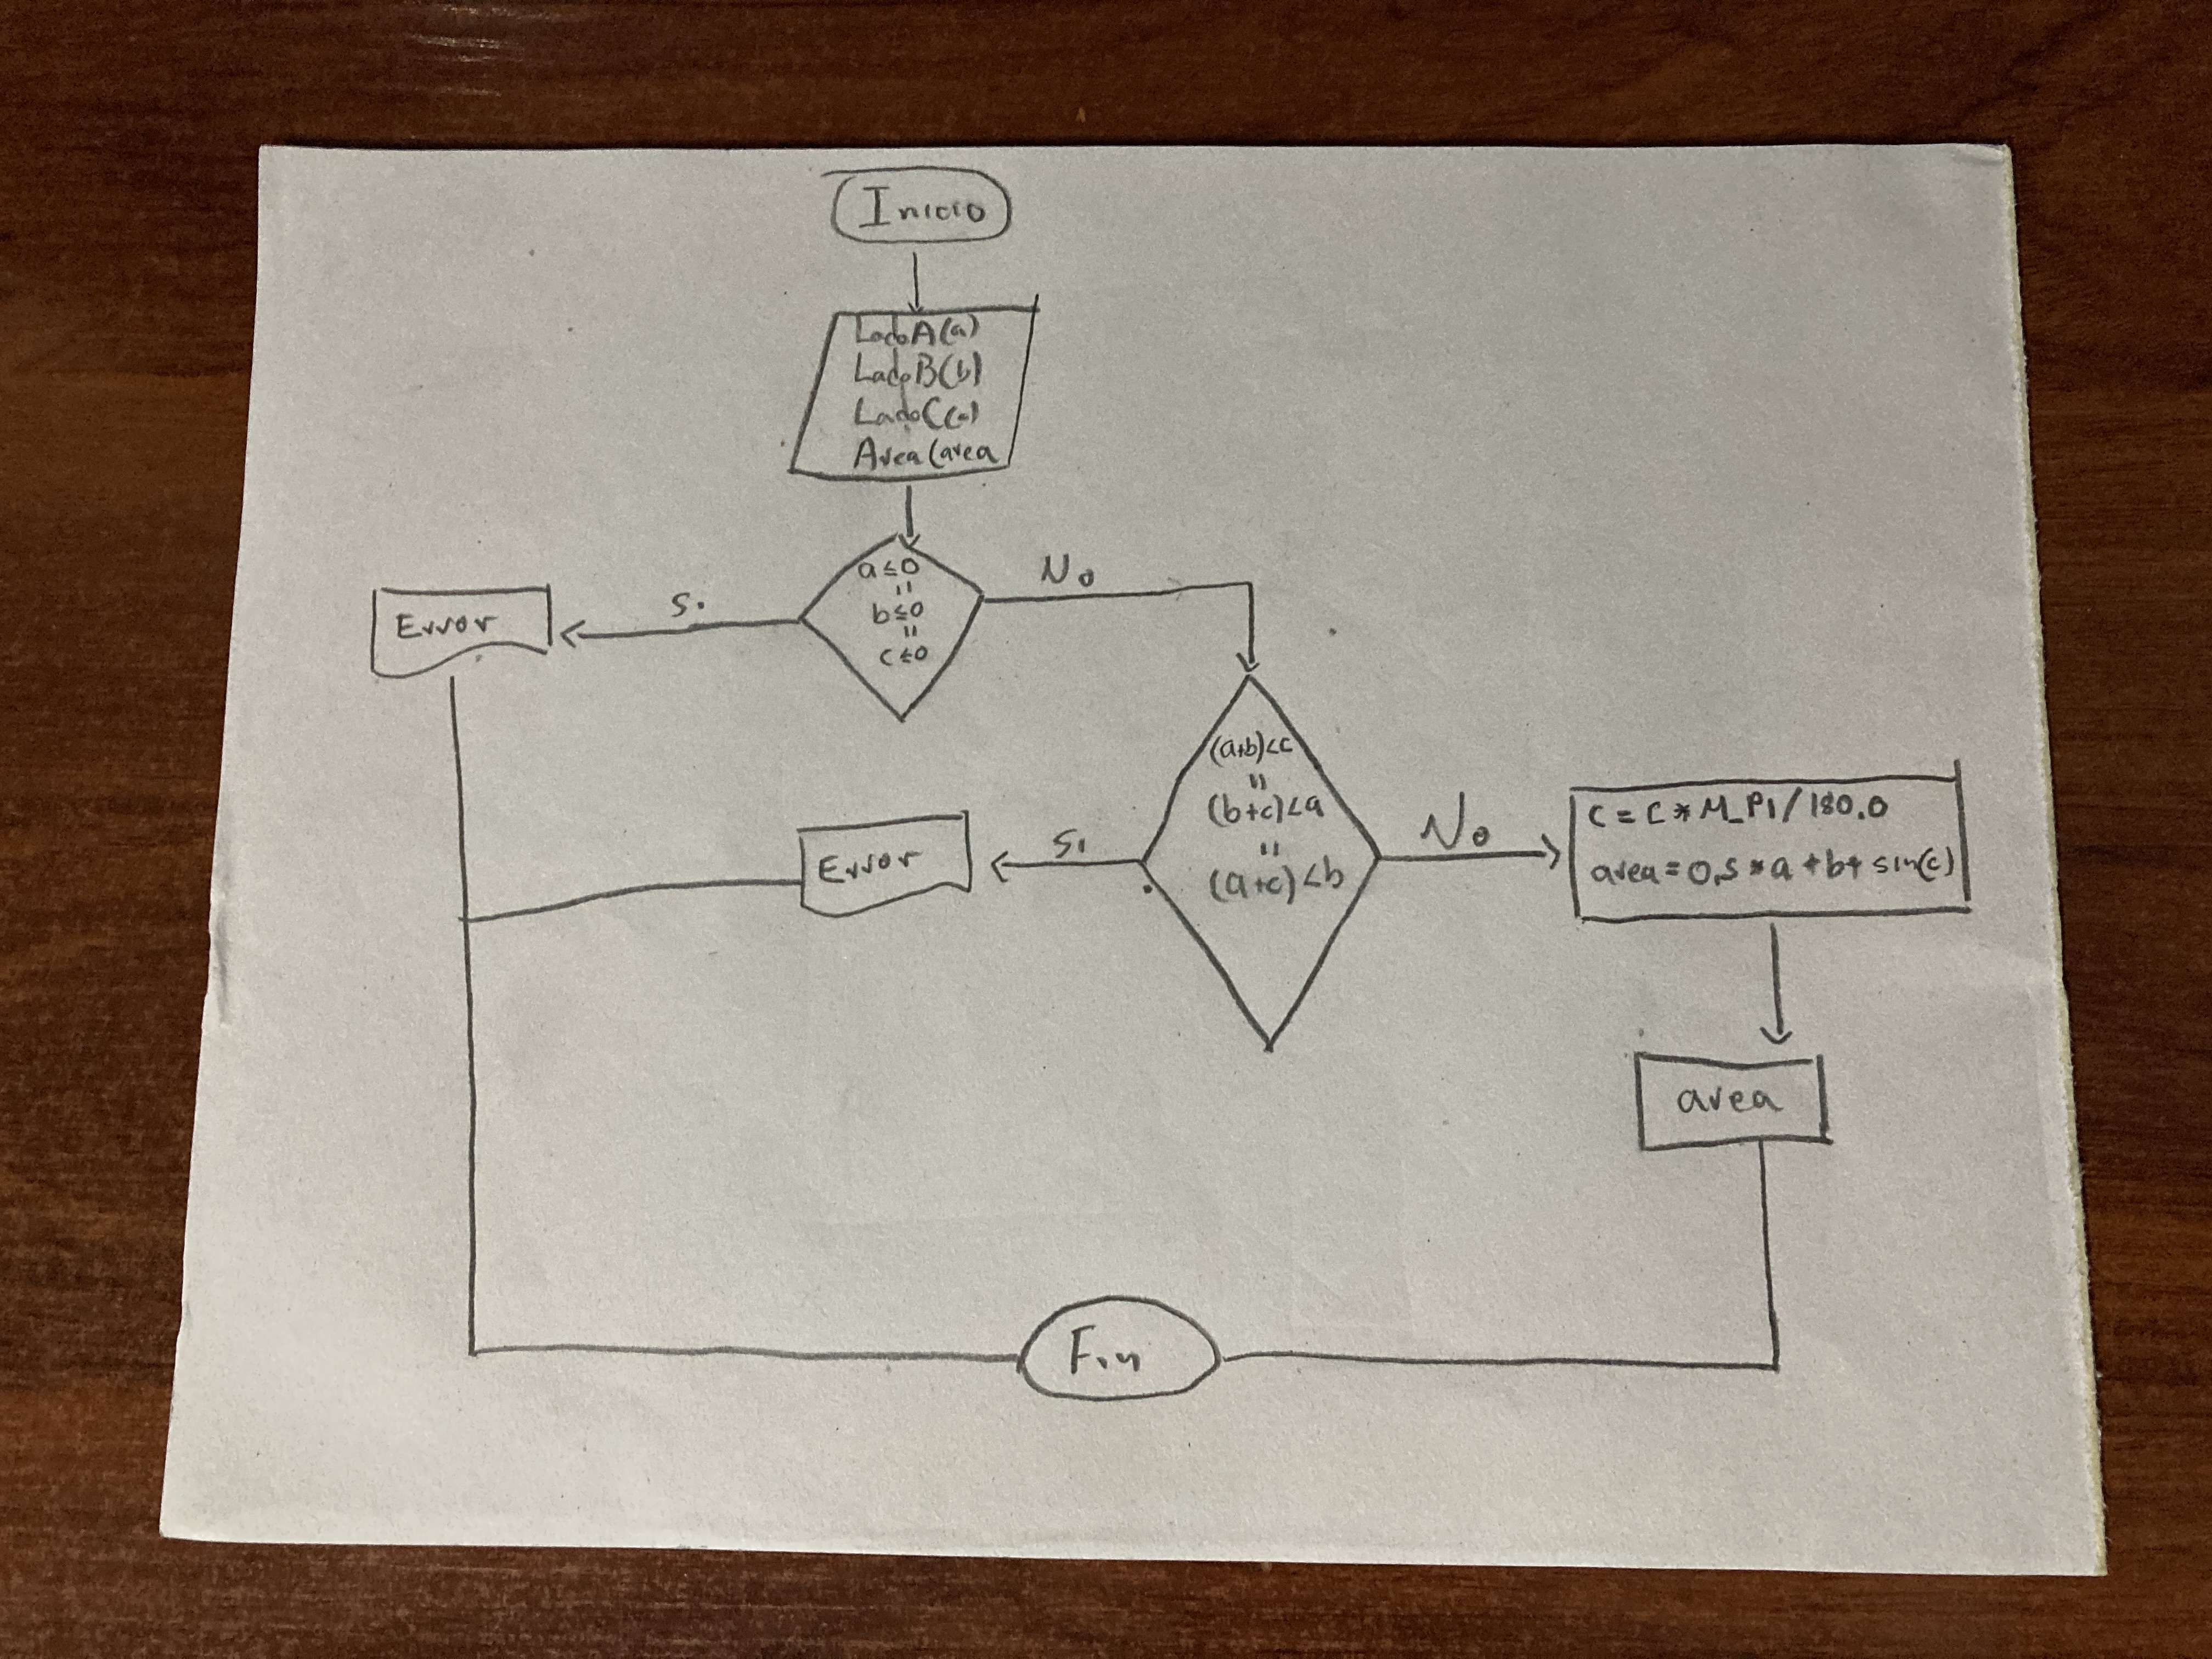 Inicio
LadoA(a)
LadoB(b)
LadoC(c)
Area(area
a≤0
"
b≤0
"
c≤0
Si
No
Error
(a+b)<c
"
(b+c)<a
"
(a+c)<b
Si
No
Error
c=c*M_PI/180.0
area=0,5*a+b+sin(c)
area
Fin